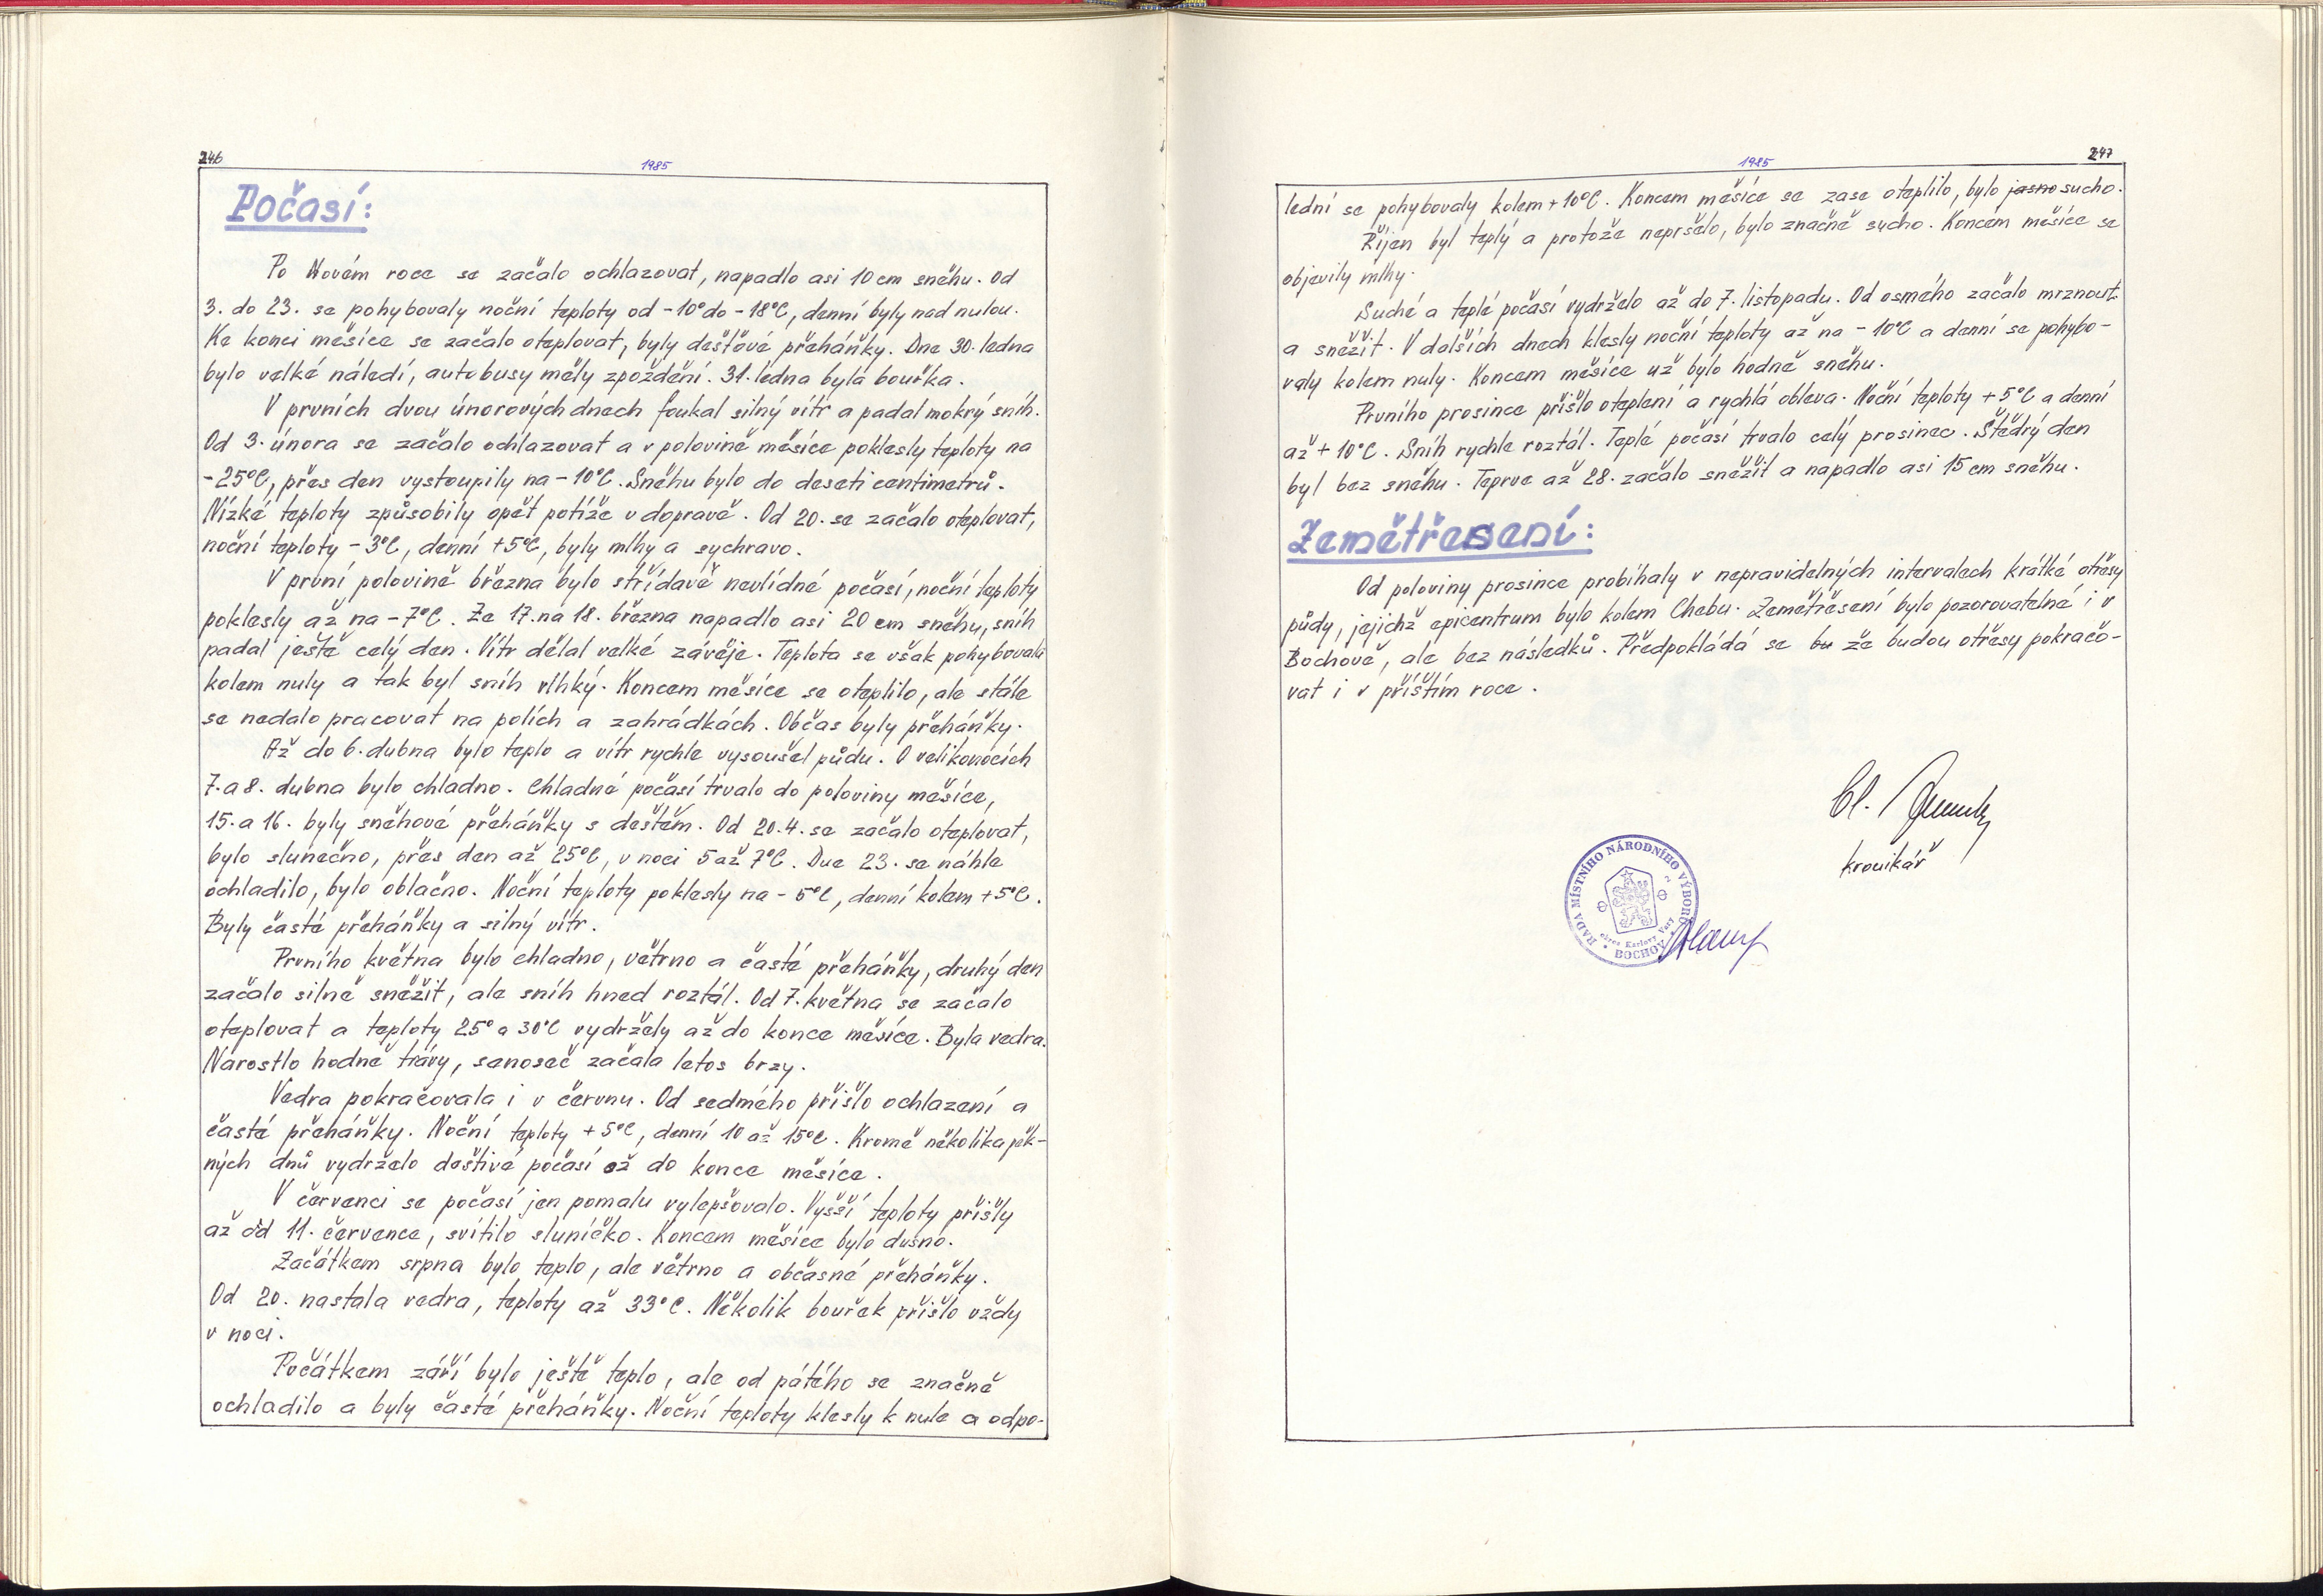 246
1985
Počasí:
Po Novém roce se začalo ochlazovat, napadlo asi 10 cm sněhu. Od
3. do 23. se pohybovaly noční teploty od -10° do -18°C, denní byly nad nulou.
Ke konci měsíce se začalo oteplovat, byly dešťové přeháňky. Dne 30. ledna
bylo velké náledí, autobusy měly zpoždění. 31. ledna byla bouřka.
V prvních dvou únorových dnech foukal silný vítr a padal mokrý sníh.
Od 3. února se začalo ochlazovat a v polovině měsíce poklesly teploty na
-25°C, přes den vystoupily na -10°C. Sněhu bylo do deseti centimetrů.
Nízké teploty způsobily opět potíže v dopravě. Od 20. se začalo oteplovat,
noční teploty -3°C, denní +5°C, byly mlhy a sychravo.
V první polovině března bylo střídavě nevlídné počasí, noční teploty
poklesly až na -7°C. Ze 17. na 18. března napadlo asi 20 cm sněhu, sníh
padal ještě celý den. Vítr dělal velké závěje. Teplota se však pohybovala
kolem nuly a tak byl sníh vlhký. Koncem měsíce se oteplilo, ale stále
se nedalo pracovat na polích a zahrádkách. Občas byly přeháňky.
Až do 6. dubna bylo teplo a vítr rychle vysoušel půdu. O velikonocích
7. a 8. dubna bylo chladno. Chladné počasí trvalo do poloviny měsíce,
15. a 16. byly sněhové přeháňky s deštěm. Od 20.4. se začalo oteplovat,
bylo slunečno, přes den až 25°C, v noci 5 až 7°C. Dne 23. se náhle
ochladilo, bylo oblačno. Noční teploty poklesly na -5°C, denní kolem +5°C.
Byly časté přeháňky a silný vítr.
Prvního května bylo chladno, větrno a časté přeháňky, druhý den
začalo silně sněžit, ale sníh hned roztál. Od 7. května se začalo
oteplovat a teploty 25° a 30°C vydržely až do konce měsíce. Byla vedra.
Narostlo hodně trávy, senoseč začala letos brzy.
Vedra pokračovala i v červnu. Od sedmého přišlo ochlazení a
časté přeháňky. Noční teploty +5°C, denní 10 až 15°C. Kromě několika pěk-
ných dnů vydrželo deštivé počasí až do konce měsíce.
V červenci se počasí jen pomalu vylepšovalo. Vyšší teploty přišly
až od 11. července, svítilo sluníčko. Koncem měsíce bylo dusno.
Začátkem srpna bylo teplo, ale větrno a občasné přeháňky.
Od 20. nastala vedra, teploty až 33°C. Několik bouřek přišlo vždy
v noci.
Počátkem září bylo ještě teplo, ale od pátého se značně
ochladilo a byly časté přeháňky. Noční teploty klesly k nule a odpo-
1985
247
lední se pohybovaly kolem +10°C. Koncem měsíce se zase oteplilo, bylo jasno sucho.
Říjen byl teplý a protože nepršelo, bylo značně sucho. Koncem měsíce se
objevily mlhy.
Suché a teplé počasí vydrželo až do 7. listopadu. Od osmého začalo mrznout
a sněžit. V dalších dnech klesly noční teploty až na -10°C a denní se pohybo-
valy kolem nuly. Koncem měsíce už bylo hodně sněhu.
Prvního prosince přišlo oteplení a rychlá obleva. Noční teploty +5°C a denní
až +10°C. Sníh rychle roztál. Teplé počasí trvalo celý prosinec. Štědrý den
byl bez sněhu. Teprve až 28. začalo sněžit a napadlo asi 15 cm sněhu.
Zemětřesení:
Od poloviny prosince probíhaly v nepravidelných intervalech krátké otřesy
půdy, jejichž epicentrum bylo kolem Chebu. Zemětřesení bylo pozorovatelné i v
Bochově, ale bez následků. Předpokládá se bu že budou otřesy pokračo-
vat i v příštím roce.
kronikář
RADA MÍSTNÍHO NÁRODNÍHO VÝBORU
okres Karlovy Vary
BOCHOV